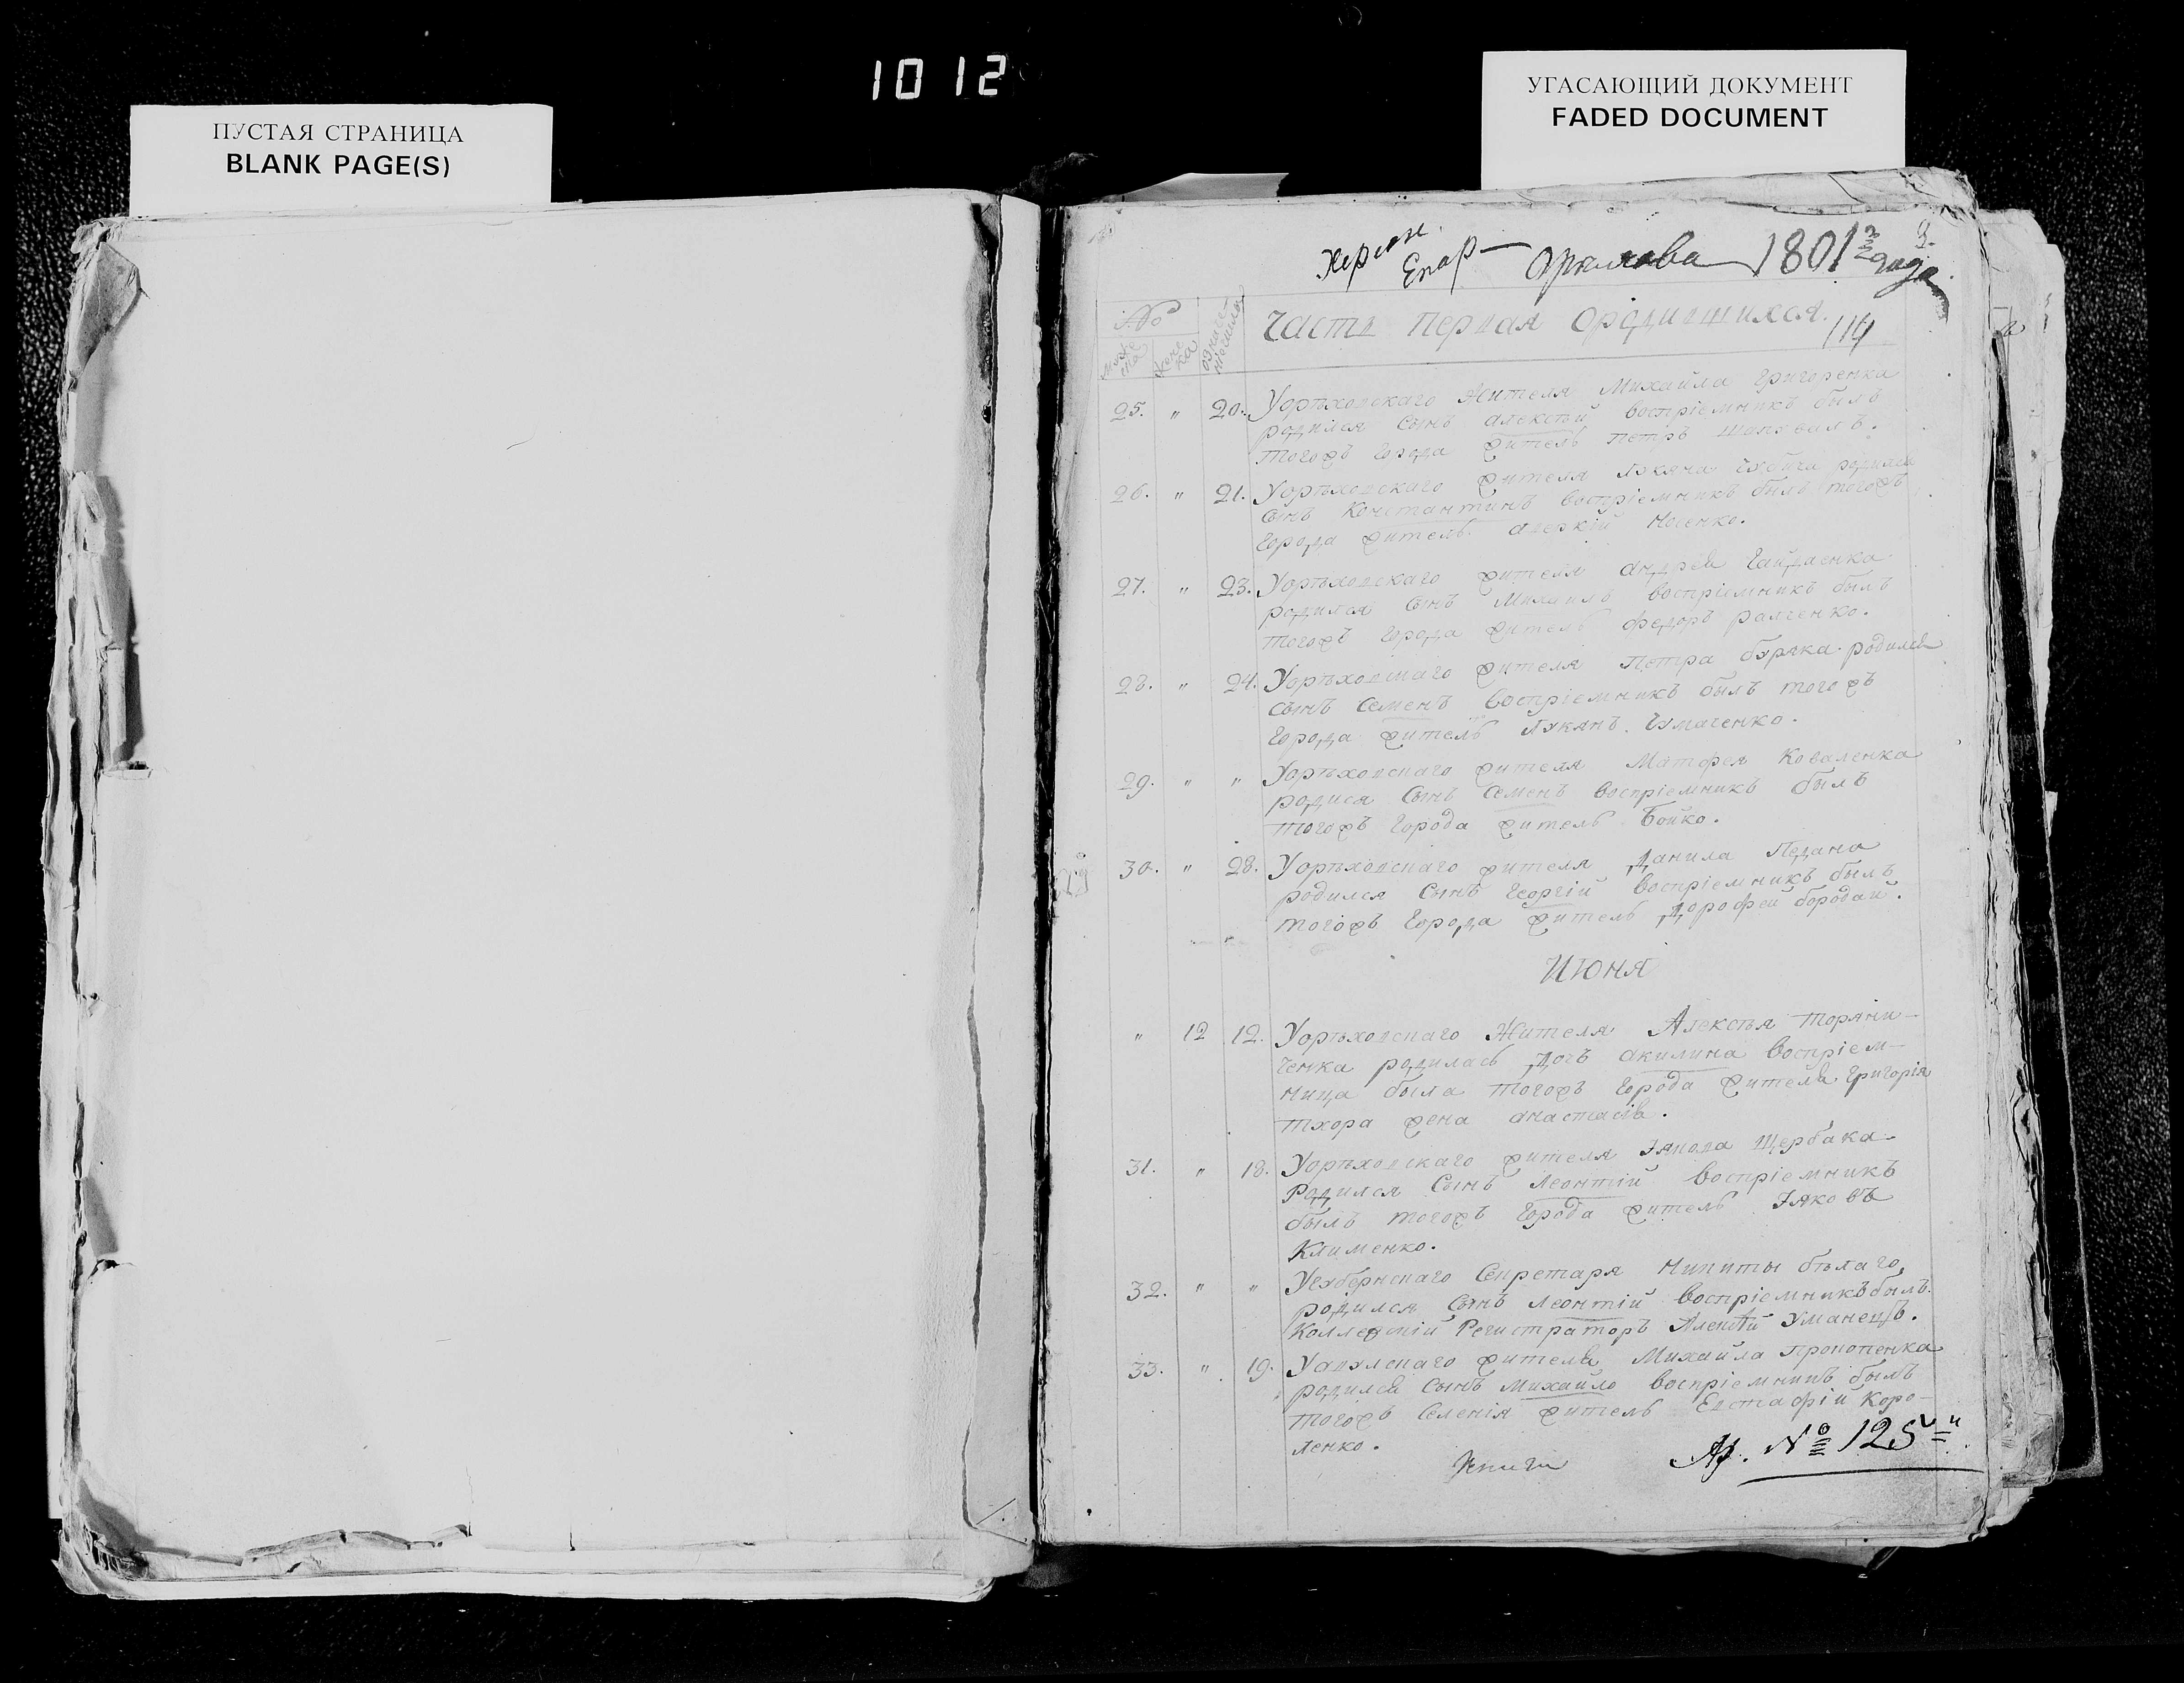 1012
ПУСТАЯ СТРАНИЦА
BLANK PAGE(S)
УГАСАЮЩИЙ ДОКУМЕНТ
FADED DOCUMENT
Херсон.
Епар- 1801 года
№
Часть первая о родившихся.
114
25. " 20. Уорѣховскаго Жителя Михайла Григоренка
родился сынъ алексѣй воспріемникъ былъ
тогожъ города житель петръ шаповалъ.
26. " 21. Уорѣховскаго жителя родился
сынъ Константинъ воспріемникъ былъ тогожъ
города житель Носенко.
27. " 23. Уорѣховскаго жителя андрея Гайдаенка
родился сынъ Михаилъ воспріемникъ былъ
тогожъ города житель федоръ
28. " 24. Уорѣховскаго жителя петра буряка родился
сынъ Семенъ воспріемникъ былъ тогожъ
города житель Чумаченко.
29. " " Уорѣховскаго жителя Матфея Коваленка
родися сынъ Семенъ воспріемникъ былъ
тогожъ города житель Бойко.
30. " 28. Уорѣховскаго жителя Данила Педана
родился сынъ Георгій воспріемникъ былъ
тогожъ города житель Дорофей бородай.
Июня
" 12 12. Уорѣховскаго Жителя Алексѣя
ченка родилась дочь акилина воспріем-
ница была тогожъ города жителя григорія
тхора жена анастасія.
31. " 18. Уорѣховскаго жителя Іакова Щербака
родился сынъ Леонтій воспріемникъ
былъ тогожъ города житель Іаковъ
Клименко.
32. " " Угубернскаго Секретаря Никиты бѣлаго,
родился сынъ Леонтій воспріемникъ былъ
Коллежскій Регистраторъ Алексѣй Уманецъ.
33. " 19. жителя Михайла прокопенка
родился сынъ Михайло воспріемникъ былъ
тогожъ селенія житель Евстафій Коро-
ленко.
№ 125